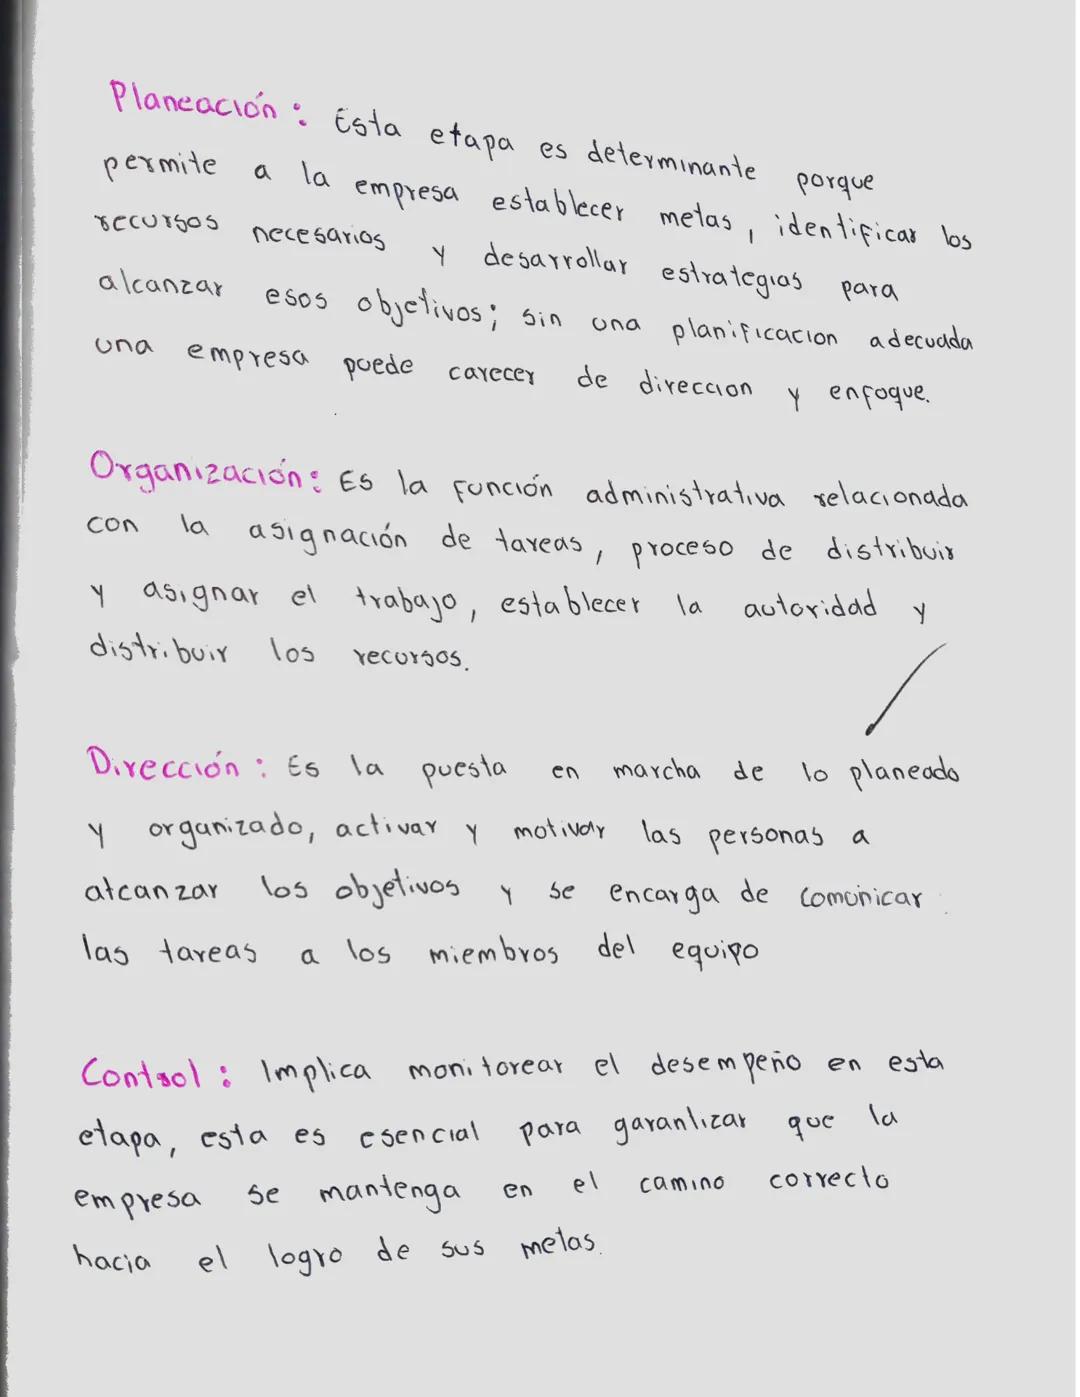 Planeación: Esta etapa es determinante porque
permite a la empresa establecer metas, identificar los
recursos necesarios y desarrollar estrategias para
alcanzar esos objetivos; sin una planificacion adecuada
una empresa puede carecer de direccion y enfoque.
Organización: Es la función administrativa relacionada
con la asignación de tareas, proceso de distribuir
y asignar el trabajo, establecer la autoridad y
distribuir los recursos.
Dirección: Es la puesta en marcha de lo planeado
y organizado, activar y motivar las personas a
alcanzar los objetivos y se encarga de comunicar
las tareas a los miembros del equipo
Control: Implica monitorear el desempeño en esta
etapa, esta es esencial para garantizar que la
empresa se mantenga en el camino correcto
hacia el logro de sus metas.